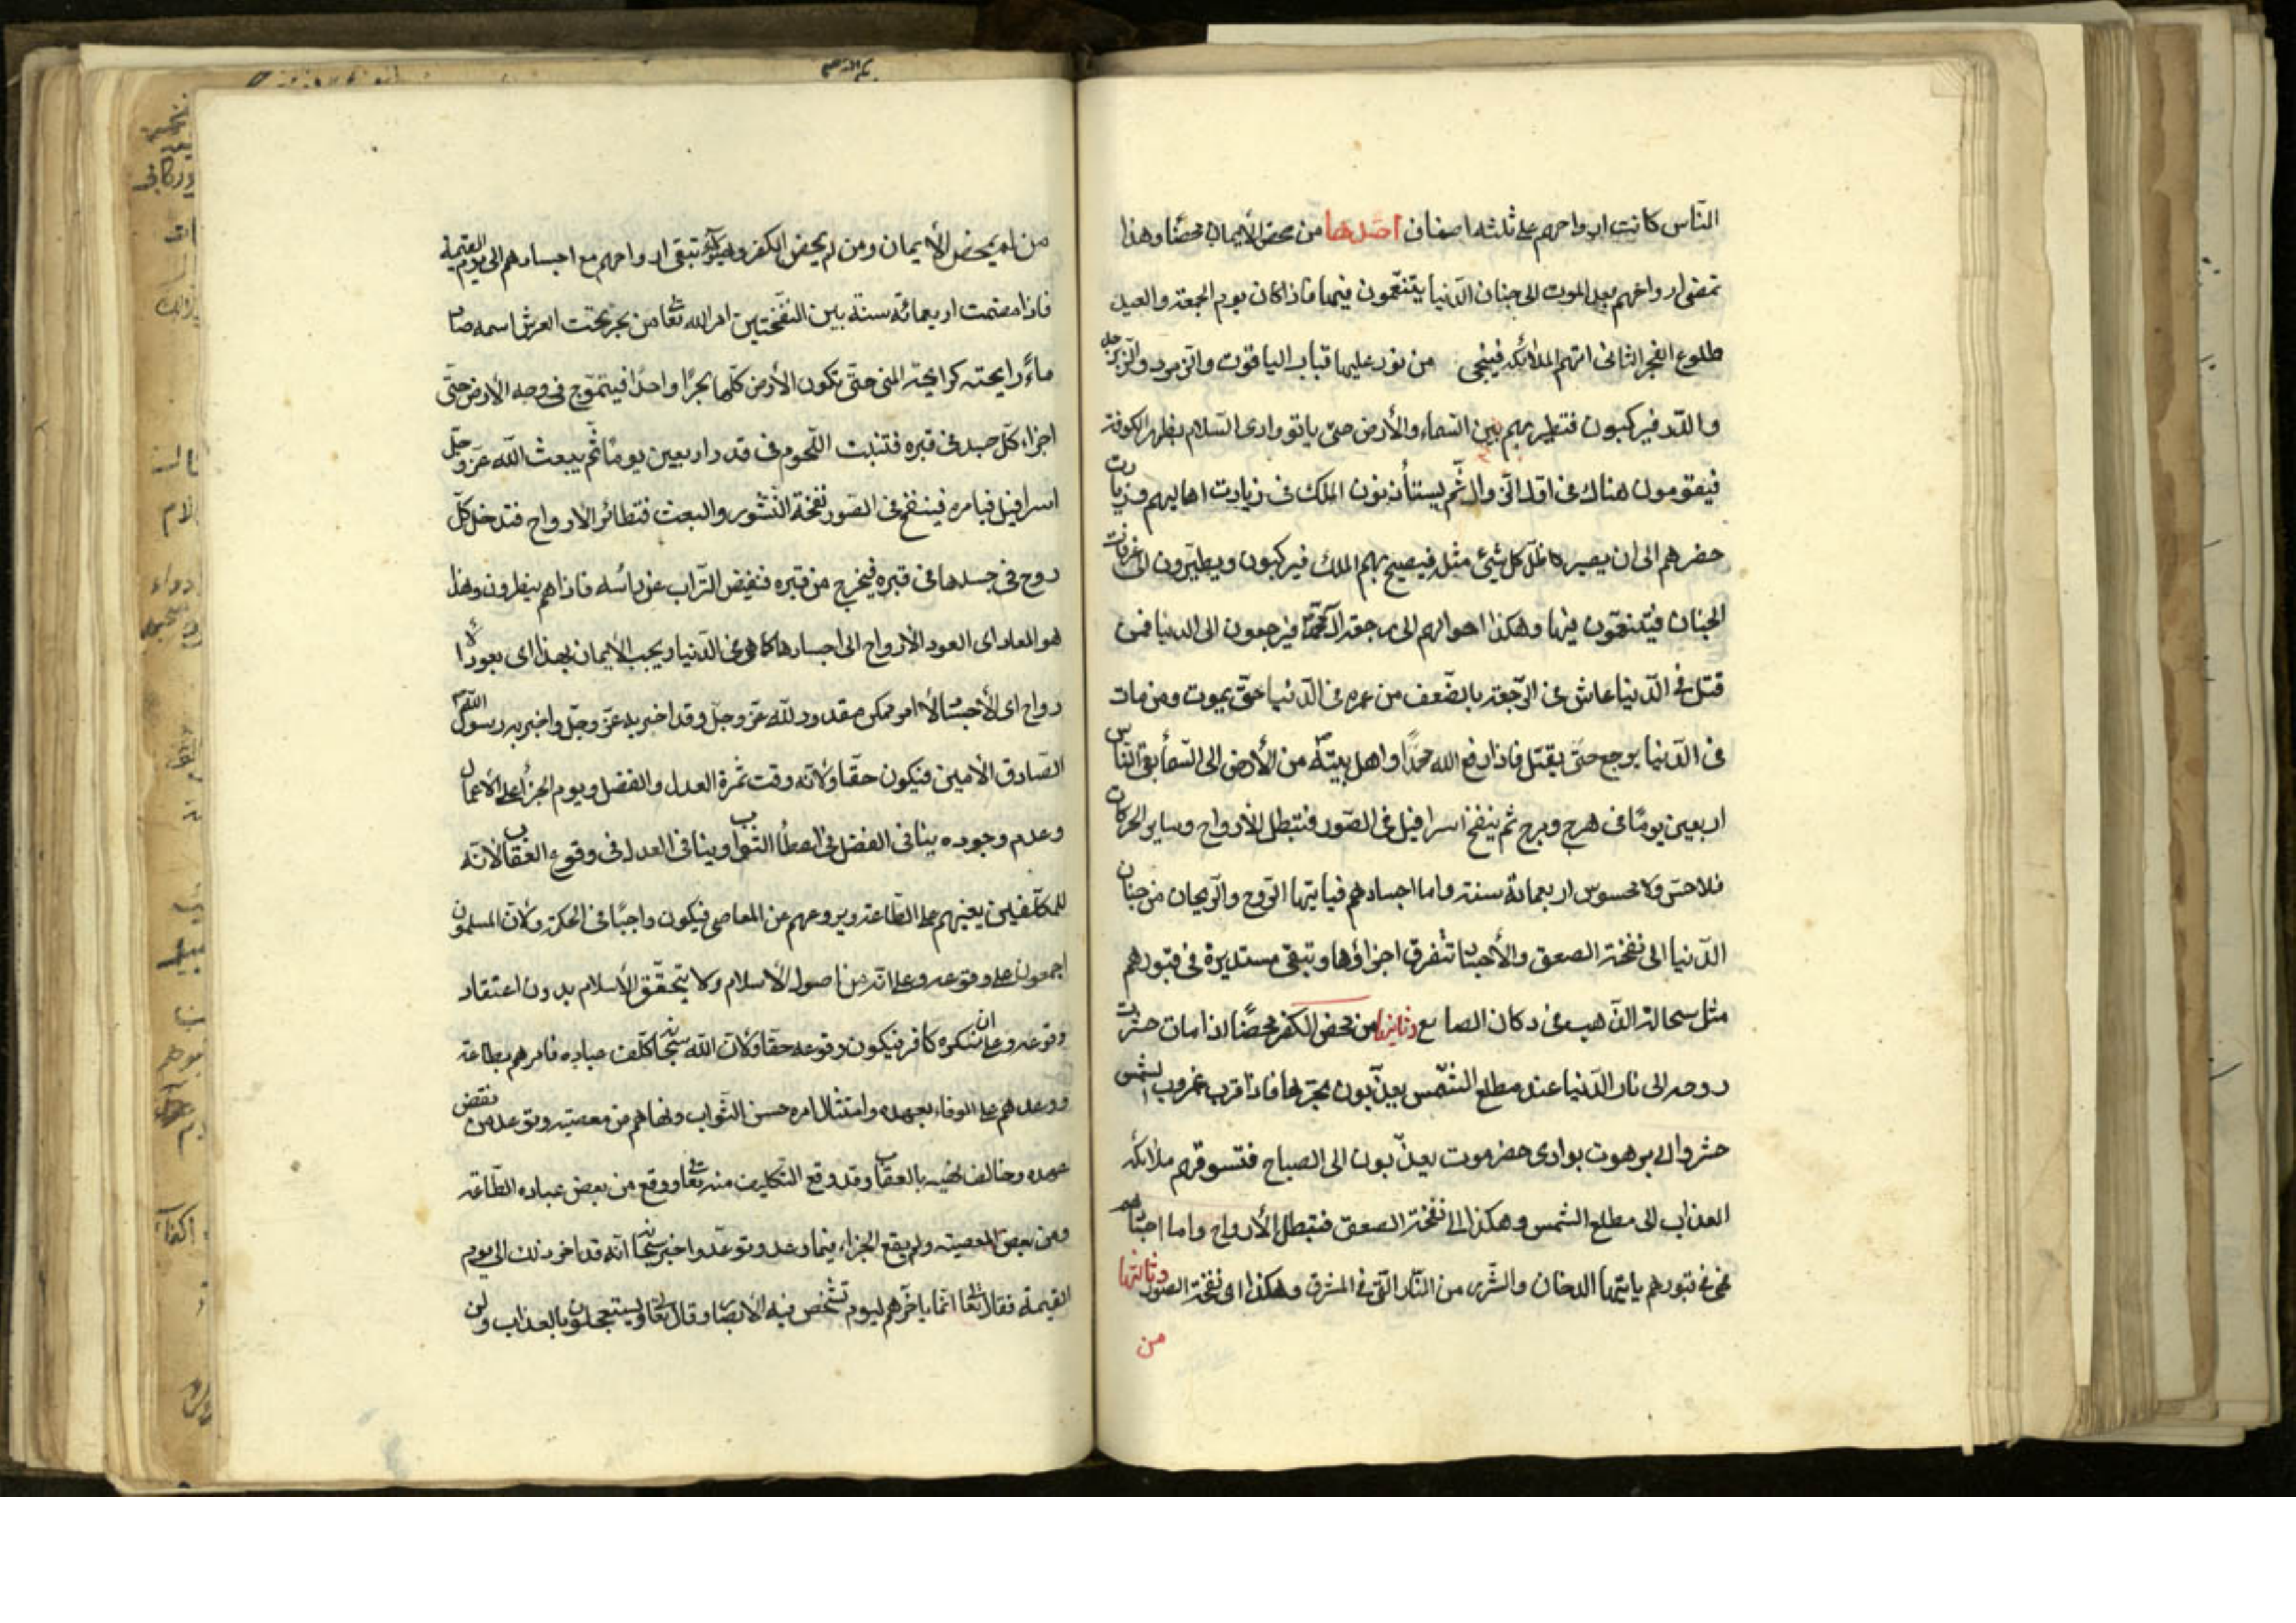 الناس كانت ارواحهم على ثلثه اصناف احدها من محض الأيمان محضًا وهذا
تمضى ارواحهم بعد الموت الى جنان الدّنيا يتنعّمون فيها فاذا كان يوم الجمعة والعيد
طلوع الفجر الثانى اتهم الملائكه فيجئ من نور عليها قباب الياقوت والزمرد والزبرجد
والدّر فيركبون فتطير بهم بين السّماء والأرض حتى ياتو وادى السّلام بظهر الكوفة
فيقومون هناك فى اول الزّوال ثم يستأذنون الملك فى زيارت اهاليهم وزيارت
حفرهم الى ان يصير ظلّ كل شيئ مثله فيصيح بهم الملك فيركبون ويطيّرون الى غرفات
الجنان فيتنعّمون فيها وهكذا احوالهم الى رجعة آل محمّد فيرجعون الى الدنيا فمن
قتل فى الدّنيا عاش فى الرّجعة بالضّعف من عمره فى الدّنيا حتّى يموت ومن مات
فى الدّنيا يرجع حتّى يقتل فاذا رفع الله محمّدًا واهل بيته من الأرض الى السّماء بقى النّاس
اربعين يومًا فى هرج ومرج ثم ينفخ اسرافيل فى الصّور فتبطل الأرواح وساير الحركات
فلا حسّ ولا محسوس اربعمائة سنة واما اجسادهم فيايتها الرّوح والرّيحان من جنان
الدّنيا الى نفخة الصعق والأجساد تتفرق اجزاؤها وتبقى مستديرة فى قبورهم
مثل سحالة الذّهب فى دكان الصايع وثانيها من محض الكفر محضًا اذا مات حشرت
روحه الى نار الدّنيا عند مطلع الشّمس يعذّبون بحرّها فاذا قرب غروب الشمس
حشروا الى برهوت بوادى حضرموت يعذّبون الى الصباح فتسوقهم ملائكه
العذاب الى مطلع الشمس وهكذا الى نفخة الصعق فتبطل الأرواح واما اجسادهم
فهى فى قبورهم ياتيها الدخان والشّرر من النّار الّتى فى المشرق وهكذا الى نفخة الصّور وثالثها
من
من لم يمحض الأيمان ومن لم يمحض الكفر وهؤلاء تبقى ارواحهم مع اجسادهم الى يوم القيمة
فاذا مضت اربعمائة سنة بين النّفختين امر الله تعا من بحر تحت العرش اسمه صاد
ماءً رايحته كرايحة المنى حتّى تكون الأرض كلّها بحرًا واحدًا فيتموّج فى وجه الأرض حتّى
اجزاء كلّ جسد فى قبره فتنبت اللّحوم فى قدر اربعين يومًا ثم يبعث اللّه عزّ وجلّ
اسرافيل فيامره فينفخ فى الصّور نفخة النّشور والبعث فتطائر الأرواح فتدخل كلّ
روح فى جسدها فى قبره فيخرج من قبره فنفض التّراب عن رائسه فاذا هم ينظرون وهذا
هو المعاد اى العود الأرواح الى اجسادها كما هى فى الدّنيا ويجب الأيمان بهذا اى بعود الأ
رواح اى الأجساد لأنه امر ممكن مقدور للّه عزّ وجلّ وقد اخبر به عزّ وجلّ واخبر به رسول اللّه
الصّادق الأمين فيكون حقّا ولأنّه وقت ثمرة العدل والفضل ويوم الجزاء على الأعمال
وعدم وجوده ينافى الفضل فى اعطاء الثواب وينافى العدل فى وقوع العقاب لأنّه
للمكلّفين يعينهم على الطّاعة ويردعهم عن المعاصى فيكون واجبًا فى الحكمة ولأنّ المسلمون
اجمعون على وقوعه وعلى انّه من اصول الأسلام ولا يتحقّق الأسلام بدون اعتقاد
وقوعه وعلى ان منكره كافر فيكون وقوعه حقّا ولأنّ اللّه سبحانه كلّف عباده فامرهم بطاعة
ووعدهم على الوفاء بعهده وامتثال امره حسن الثّواب ونهاهم من معصيته وتوعد من نقض
عهده وخالف نهيه بالعقاب وقد وقع التّكليف منه تعا ووقع من بعض عباده الطّاعة
ومن بعض المعصيته ولم يقع الجزاء فيما وعد وتوعّد واخبر سبحانه انّه قد اخر ذلك الى يوم
القيمة فقال تعا انّما ياخّرهم ليوم تشخص فيه الأبصار وقال تعا ويستعجلون بالعذاب ولن